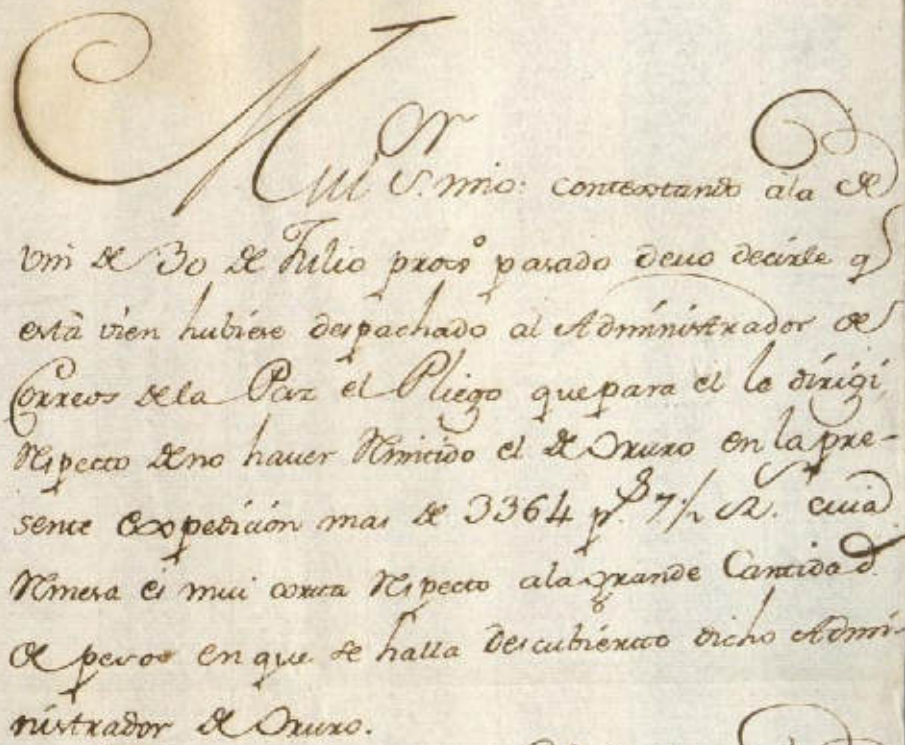 Mui Sor. mio: contextando ala de
vm de 30 de Julio proxo. pasado devo decirle q
está vien hubiese despachado al Administrador de
Correos dela Paz el Pliego que para el le dirigi,
respecto deno haver remitido el de Oruro en la pre-
sente expedición mas de 3364 ps. 7 1/2 Rs. cuia
remesa es mui corta respecto ala grande Cantidad
de pesos en que se halla descubierto dicho Admi-
nistrador de Oruro.